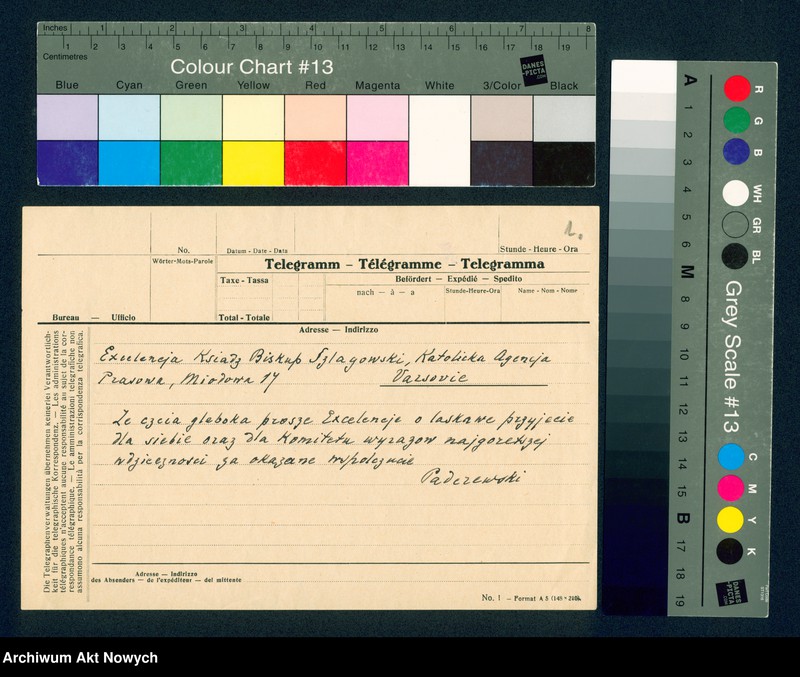 Inches 1 2 3 4 5 6 7 8
1 2 3 4 5 6 7 8 9 10 11 12 13 14 15 16 17 18 19
Centimetres
Colour Chart #13
DANES-PICTA.COM
Blue Cyan Green Yellow Red Magenta White 3/Color Black
A 1 2 3 4 5 6 M 8 9 10 11 12 13 14 15 B 17 18 19
R G B WH GR BL
Grey Scale #13
C M Y K
DANES-PICTA.COM
1.
No. Datum - Date - Data Stunde - Heure - Ora
Wörter-Mots-Parole
Telegramm – Télégramme – Telegramma
Taxe - Tassa Befördert – Expédié – Spedito
nach — à — a Stunde-Heure-Ora Name - Nom - Nome
Bureau — Ufficio Total - Totale
Adresse — Indirizzo
Excelencja Ksiadz Biskup Szlagowski, Katolicka Agencja
Prasowa, Miodowa 17 Varsovie
Ze czcia gleboka prosze Excelencje o laskawe przyjecie
dla siebie oraz dla Komitetu wyrazow najgoretszej
wdziecznosci za okazane wspolczucie
Paderewski
Die Telegraphenverwaltungen übernehmen keinerlei Verantwortlich-
keit für die telegraphische Korrespondenz. — Les administrations
télégraphiques n'acceptent aucune responsabilité au sujet de la cor-
respondance télégraphique. — Le amministrazioni telegrafiche non
assumono alcuna responsabilità per la corrispondenza telegrafica.
Adresse — Indirizzo
des Absenders — de l'expéditeur — del mittente
No. 1 – Format A 5 (148 × 210).
Archiwum Akt Nowych